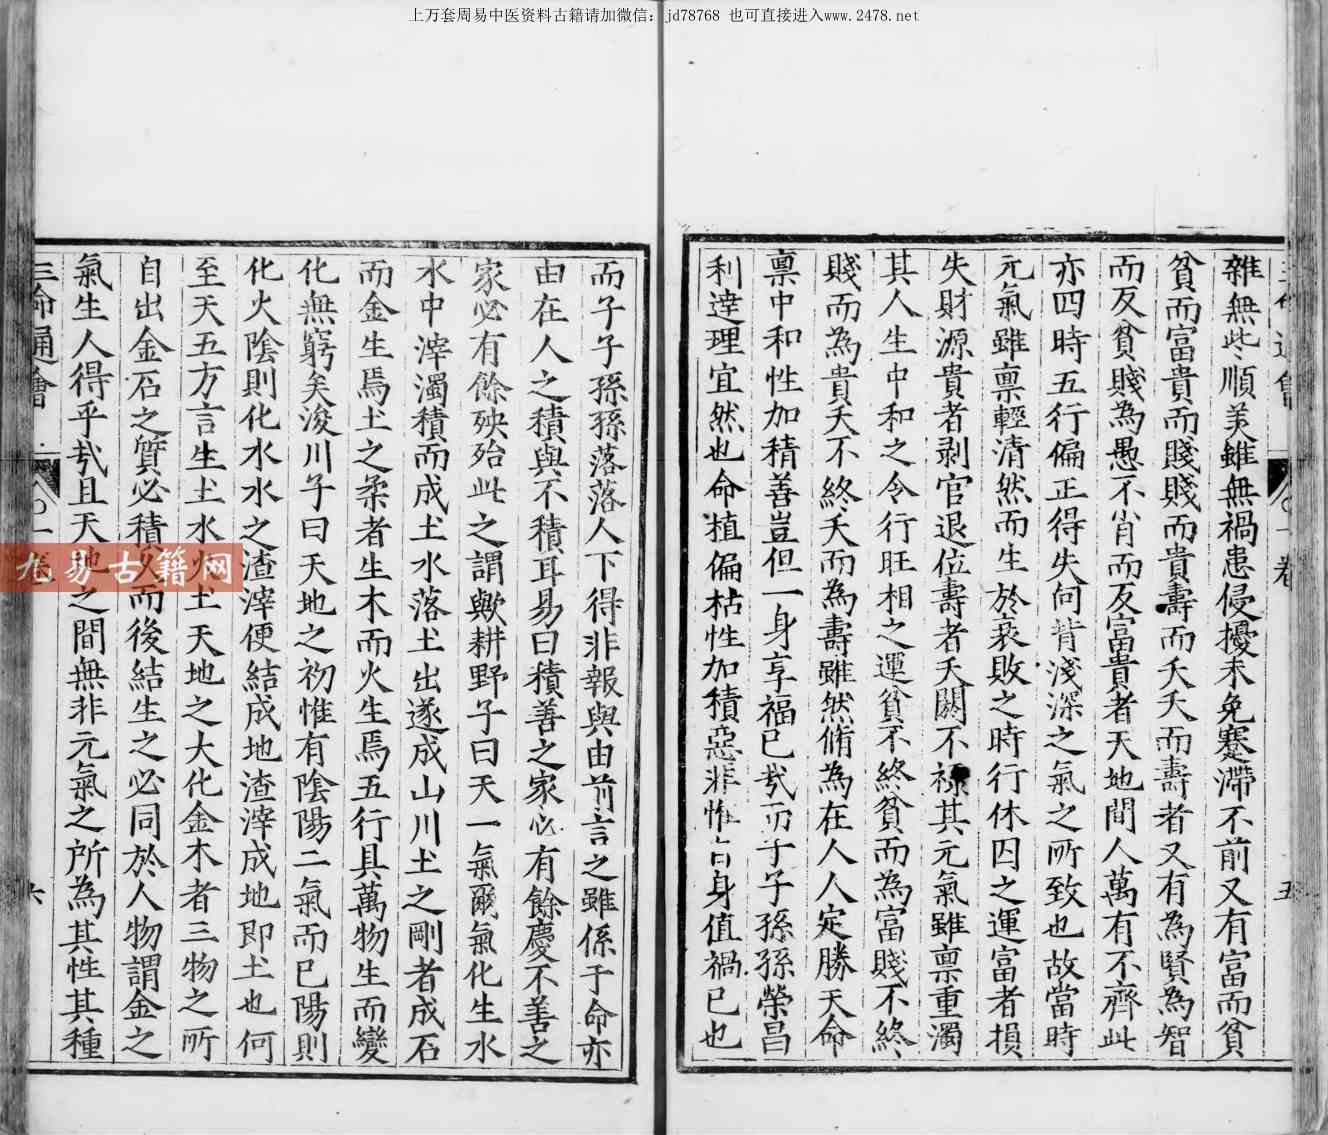 上万套周易中医资料古籍请加微信：jd78768 也可直接进入www.2478.net
三命通會
一卷
五
雜無此順美雖無禍患侵擾未免蹇滯不前又有富而貧
貧而富貴而賤賤而貴壽而夭夭而壽者又有為賢為智
而反貧賤為愚不肖而反富貴者天地間人萬有不齊此
亦四時五行偏正得失向背淺深之氣之所致也故當時
元氣雖禀輕清然而生於衰敗之時行休囚之運富者損
失財源貴者剥官退位壽者夭闕不祿其元氣雖禀重濁
其人生中和之令行旺相之運貧不終貧而為富賤不終
賤而為貴夭不終夭而為壽雖然脩為在人人定勝天命
禀中和性加積善豈但一身享福已哉而子子孫孫榮昌
利達理宜然也命植偏枯性加積惡非惟自身值禍已也
而子子孫孫落落人下得非報與由前言之雖係于命亦
由在人之積與不積耳易曰積善之家必有餘慶不善之
家必有餘殃殆此之謂歟耕野子曰天一氣爾氣化生水
水中滓濁積而成土水落土出遂成山川土之剛者成石
而金生焉土之柔者生木而火生焉五行具萬物生而變
化無窮矣浚川子曰天地之初惟有陰陽二氣而已陽則
化火陰則化水水之渣滓便結成地渣滓成地即土也何
至天五方言生土水火土天地之大化金木者三物之所
自出金石之質必積久而後結生之必同於人物謂金之
氣生人得乎哉且天地之間無非元氣之所為其性其種
三命通會
一卷
六
九易古籍网